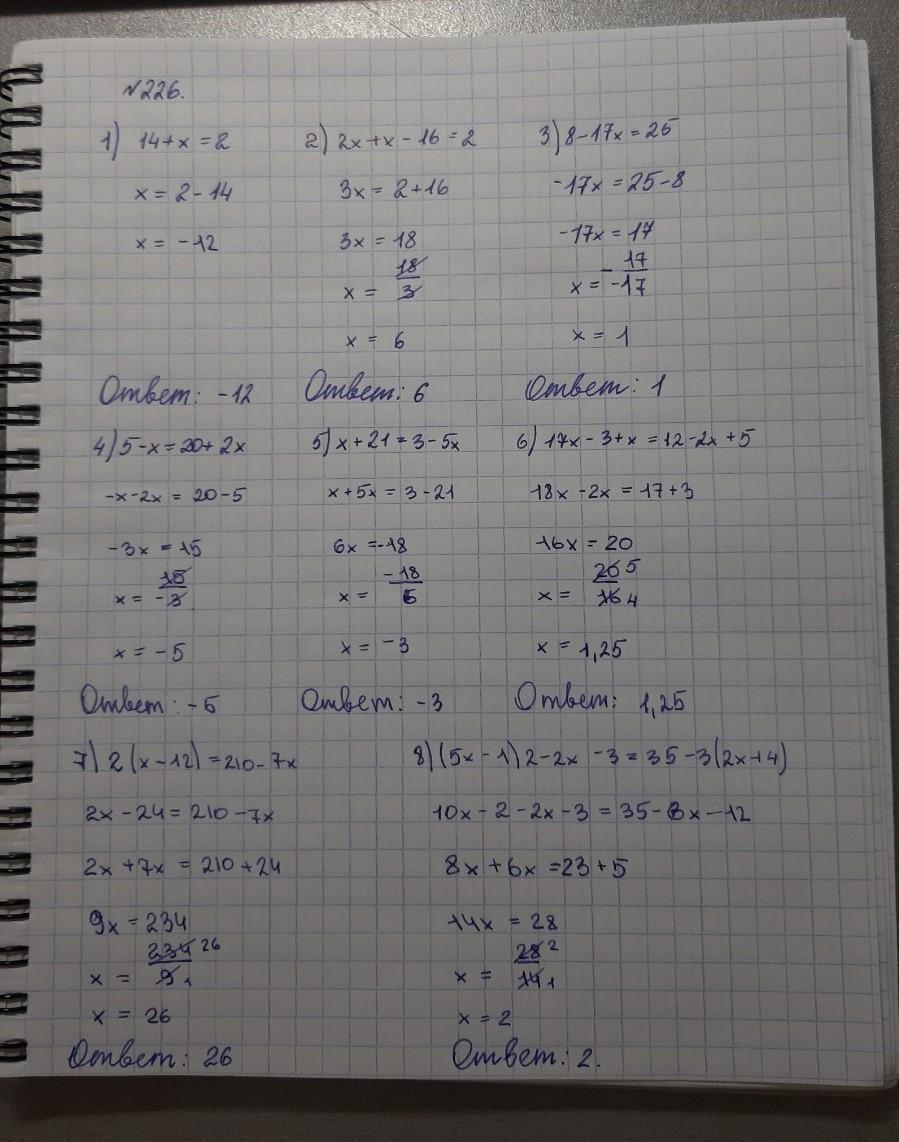 №226.
1) 14+x=2
x = 2-14
x = -12
Ответ: -12
2) 2x+x-16=2
3x = 2+16
3x = 18
x = 18/3
x = 6
Ответ: 6
3) 8-17x=25
-17x = 25-8
-17x = 17
x = - 17/-17
x = 1
Ответ: 1
4) 5-x=20+2x
-x-2x = 20-5
-3x = 15
x = 15/-3
x = -5
Ответ: -5
5) x+21=3-5x
x+5x = 3-21
6x = -18
x = -18/6
x = -3
Ответ: -3
6) 17x-3+x=12-2x+5
18x-2x = 17+3
16x = 20
x = 20 5/16 4
x = 1,25
Ответ: 1,25
7) 2(x-12)=210-7x
2x-24=210-7x
2x+7x = 210+24
9x = 234
x = 234 26/9 1
x = 26
Ответ: 26
8) (5x-1)2-2x-3=35-3(2x+4)
10x-2-2x-3=35-6x-12
8x+6x=23+5
14x = 28
x = 28 2/14 1
x = 2
Ответ: 2.